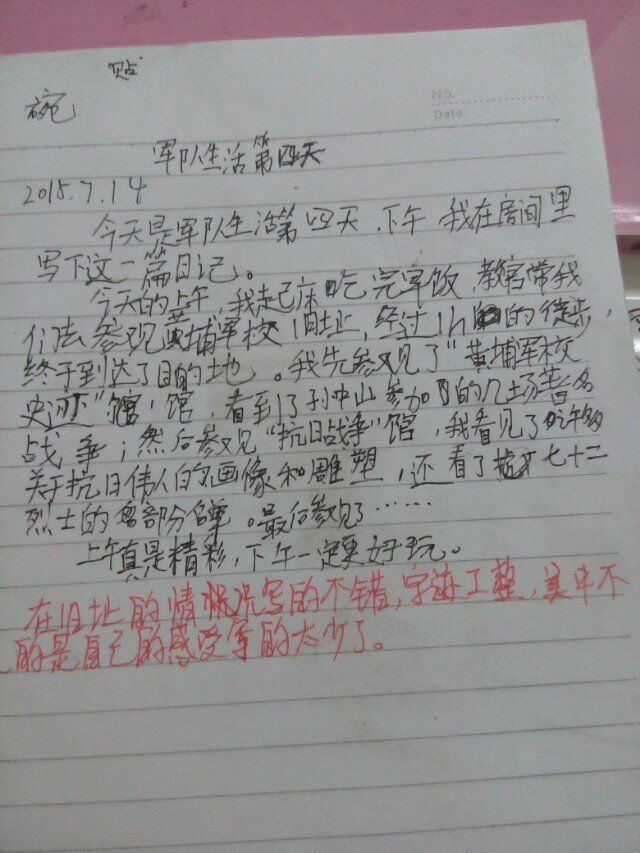 贴
碗
No.
Date
军队生活第四天
2015.7.14
今天是军队生活第四天,下午,我在房间里
写下这一篇日记。
今天的上午,我起床吃完军饭,教官带我
们去参观黄埔军校旧址,经过1h的徒步,
终于到达了目的地。我先参观了“黄埔军校
史迹”馆,看到了孙中山参加的几场著名
战争;然后参观“抗日战争”馆,我看见了许多
关于抗日伟人的画像和雕塑,还看了七十二
烈士的部分名单。最后参观了……
上午真是精彩,下午一定更好玩。
在旧址的情状况写的不错,字迹工整,美中不
的是自己的感受写的太少了。